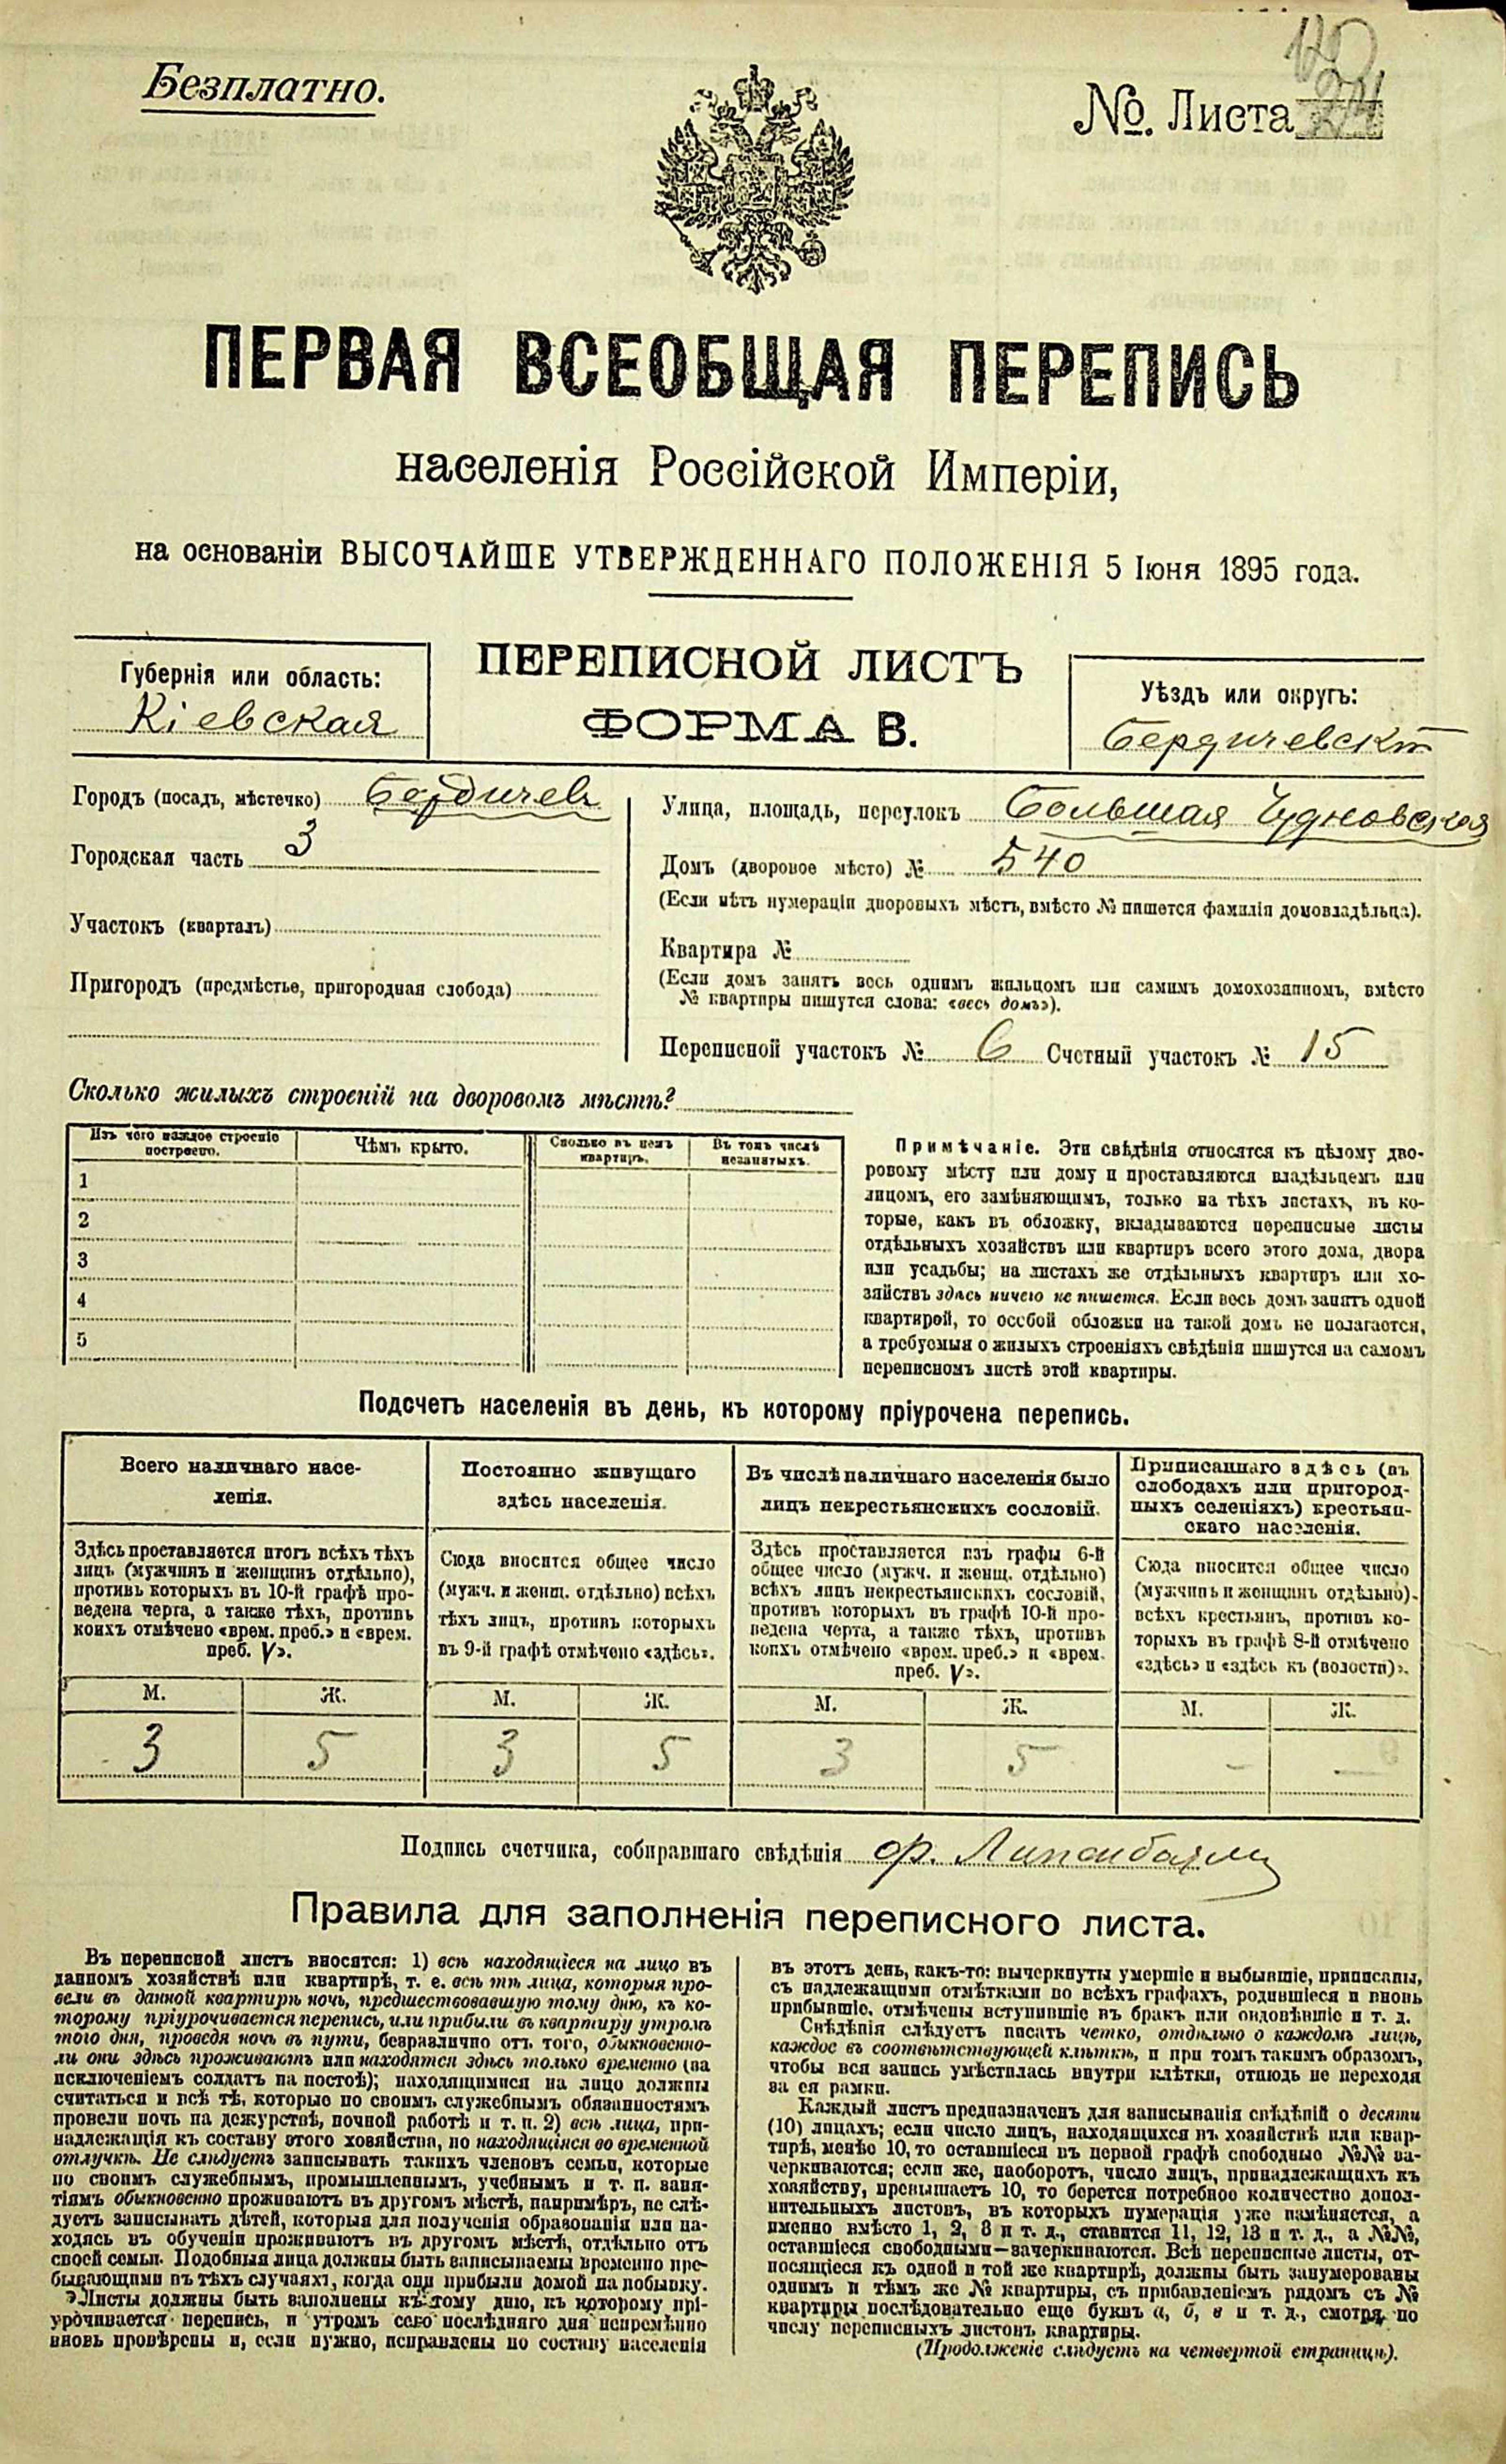 Безплатно.
№. Листа
ПЕРВАЯ ВСЕОБЩАЯ ПЕРЕПИСЬ
населенія Россійской Имперіи,
на основаніи ВЫСОЧАЙШЕ УТВЕРЖДЕННАГО ПОЛОЖЕНІЯ 5 Іюня 1895 года.
Губернія или область:
Кіевская
ПЕРЕПИСНОЙ ЛИСТЪ
ФОРМА В.
Уѣздъ или округъ:
Бердичевскій
Городъ (посадъ, мѣстечко) Бердичев
Городская часть 3
Участокъ (кварталъ)
Пригородъ (предмѣстье, пригородная слобода)
Улица, площадь, переулокъ Большая Чудновская
Домъ (дворовое мѣсто) № 540
(Если нѣтъ нумераціи дворовыхъ мѣстъ, вмѣсто № пишется фамилія домовладѣльца).
Квартира №
(Если домъ занятъ весь однимъ жильцомъ или самимъ домохозяиномъ, вмѣсто
№ квартиры пишутся слова: «весь домъ»).
Переписной участокъ № 6 Счетный участокъ № 15
Сколько жилыхъ строеній на дворовомъ мѣстѣ?
Изъ чего каждое строеніе
построено.
Чѣмъ крыто.
Сколько въ немъ
квартиръ.
Въ томъ числѣ
незанятыхъ.
1
2
3
4
5
Примѣчаніе. Эти свѣдѣнія относятся къ цѣлому дво-
ровому мѣсту или дому и проставляются владѣльцемъ или
лицомъ, его замѣняющимъ, только на тѣхъ листахъ, въ ко-
торые, какъ въ обложку, вкладываются переписные листы
отдѣльныхъ хозяйствъ или квартиръ всего этого дома, двора
или усадьбы; на листахъ же отдѣльныхъ квартиръ или хо-
зяйствъ здѣсь ничего не пишется. Если весь домъ занятъ одной
квартирой, то особой обложки на такой домъ не полагается,
а требуемыя о жилыхъ строеніяхъ свѣдѣнія пишутся на самомъ
переписномъ листѣ этой квартиры.
Подсчетъ населенія въ день, къ которому пріурочена перепись.
Всего наличнаго насе-
ленія.
Здѣсь проставляется итогъ всѣхъ тѣхъ
лицъ (мужчинъ и женщинъ отдѣльно),
противъ которыхъ въ 10-й графѣ про-
ведена черта, а также тѣхъ, противъ
коихъ отмѣчено «врем. преб.» и «врем.
преб. V».
М. Ж.
3 5
Постоянно живущаго
здѣсь населенія.
Сюда вносится общее число
(мужч. и женщ. отдѣльно) всѣхъ
тѣхъ лицъ, противъ которыхъ
въ 9-й графѣ отмѣчено «здѣсь».
М. Ж.
3 5
Въ числѣ наличнаго населенія было
лицъ некрестьянскихъ сословій.
Здѣсь проставляется изъ графы 6-й
общее число (мужч. и женщ. отдѣльно)
всѣхъ лицъ некрестьянскихъ сословій,
противъ которыхъ въ графѣ 10-й про-
ведена черта, а также тѣхъ, противъ
коихъ отмѣчено «врем. преб.» и «врем.
преб. V».
М. Ж.
3 5
Приписаннаго здѣсь (въ
слободахъ или пригород-
ныхъ селеніяхъ) крестьян-
скаго населенія.
Сюда вносится общее число
(мужчинъ и женщинъ отдѣльно)
всѣхъ крестьянъ, противъ ко-
торыхъ въ графѣ 8-й отмѣчено
«здѣсь» и «здѣсь къ (волости)».
М. Ж.
- -
Подпись счетчика, собиравшаго свѣдѣнія
Правила для заполненія переписного листа.
Въ переписной листъ вносятся: 1) всѣ находящіеся на лицо въ
данномъ хозяйствѣ или квартирѣ, т. е. всѣ тѣ лица, которыя про-
вели въ данной квартирѣ ночь, предшествовавшую тому дню, къ ко-
торому пріурочивается перепись, или прибыли въ квартиру утромъ
того дня, проведя ночь въ пути, безразлично отъ того, обыкновенно-
ли они здѣсь проживаютъ или находятся здѣсь только временно (за
исключеніемъ солдатъ на постоѣ); находящимися на лицо должны
считаться и всѣ тѣ, которые по своимъ служебнымъ обязанностямъ
провели ночь на дежурствѣ, ночной работѣ и т. п. 2) всѣ лица, при-
надлежащія къ составу этого хозяйства, но находящіяся во временной
отлучкѣ. Не слѣдуетъ записывать такихъ членовъ семьи, которые
по своимъ служебнымъ, промышленнымъ, учебнымъ и т. п. заня-
тіямъ обыкновенно проживаютъ въ другомъ мѣстѣ, напримѣръ, не слѣ-
дуетъ записывать дѣтей, которыя для полученія образованія или на-
ходясь въ обученіи проживаютъ въ другомъ мѣстѣ, отдѣльно отъ
своей семьи. Подобныя лица должны быть записываемы временно пре-
бывающими въ тѣхъ случаяхъ, когда они прибыли домой на побывку.
Листы должны быть заполнены къ тому дню, къ которому прі-
урочивается перепись, и утромъ сего послѣдняго дня непремѣнно
вновь провѣрены и, если нужно, исправлены по составу населенія
въ этотъ день, какъ-то: вычеркнуты умершіе и выбывшіе, приписаны,
съ надлежащими отмѣтками во всѣхъ графахъ, родившіеся и вновь
прибывшіе, отмѣчены вступившіе въ бракъ или овдовѣвшіе и т. д.
Свѣдѣнія слѣдуетъ писать четко, отдѣльно о каждомъ лицѣ,
каждое въ соотвѣтствующей клѣткѣ, и при томъ такимъ образомъ,
чтобы вся запись умѣстилась внутри клѣтки, отнюдь не переходя
за ея рамки.
Каждый листъ предназначенъ для записыванія свѣдѣній о десяти
(10) лицахъ; если число лицъ, находящихся въ хозяйствѣ или квар-
тирѣ, менѣе 10, то оставшіеся въ первой графѣ свободные №№ за-
черкиваются; если же, наоборотъ, число лицъ, принадлежащихъ къ
хозяйству, превышаетъ 10, то берется потребное количество допол-
нительныхъ листовъ, въ которыхъ нумерація уже измѣняется, а
именно вмѣсто 1, 2, 3 и т. д., ставится 11, 12, 13 и т. д., а №№,
оставшіеся свободными—зачеркиваются. Всѣ переписные листы, от-
носящіеся къ одной и той же квартирѣ, должны быть занумерованы
однимъ и тѣмъ же № квартиры, съ прибавленіемъ рядомъ съ №
квартиры послѣдовательно еще буквъ а, б, в и т. д., смотря по
числу переписныхъ листовъ квартиры.
(Продолженіе слѣдуетъ на четвертой страницѣ).